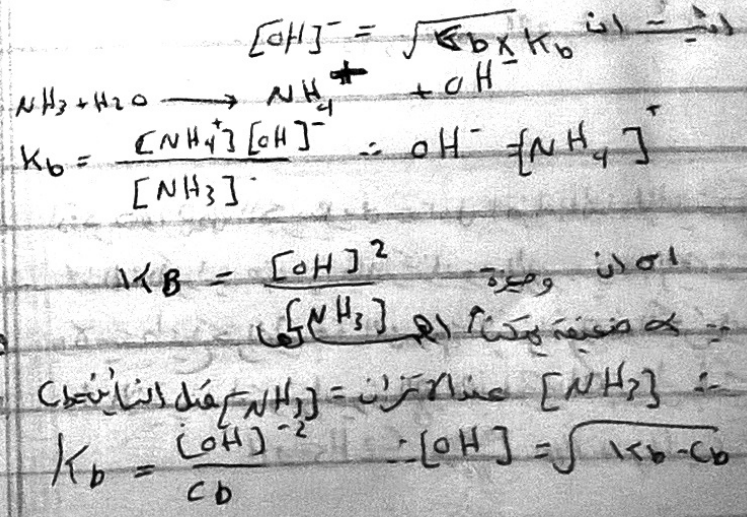 اثبت ان [OH]⁻ = √Cb × Kb
NH₃ + H₂O ⟶ NH₄⁺ + OH⁻
Kb = [NH₄⁺][OH]⁻ / [NH₃] ∴ OH⁻ = [NH₄]⁺
KB = [OH]² / [NH₃]
∵ α ضعيفة يمكن اهمالها
∴ [NH₃] عند الاتزان = [NH₃] قبل التأين = Cb
Kb = [OH]⁻² / Cb ∴ [OH] = √Kb - Cb